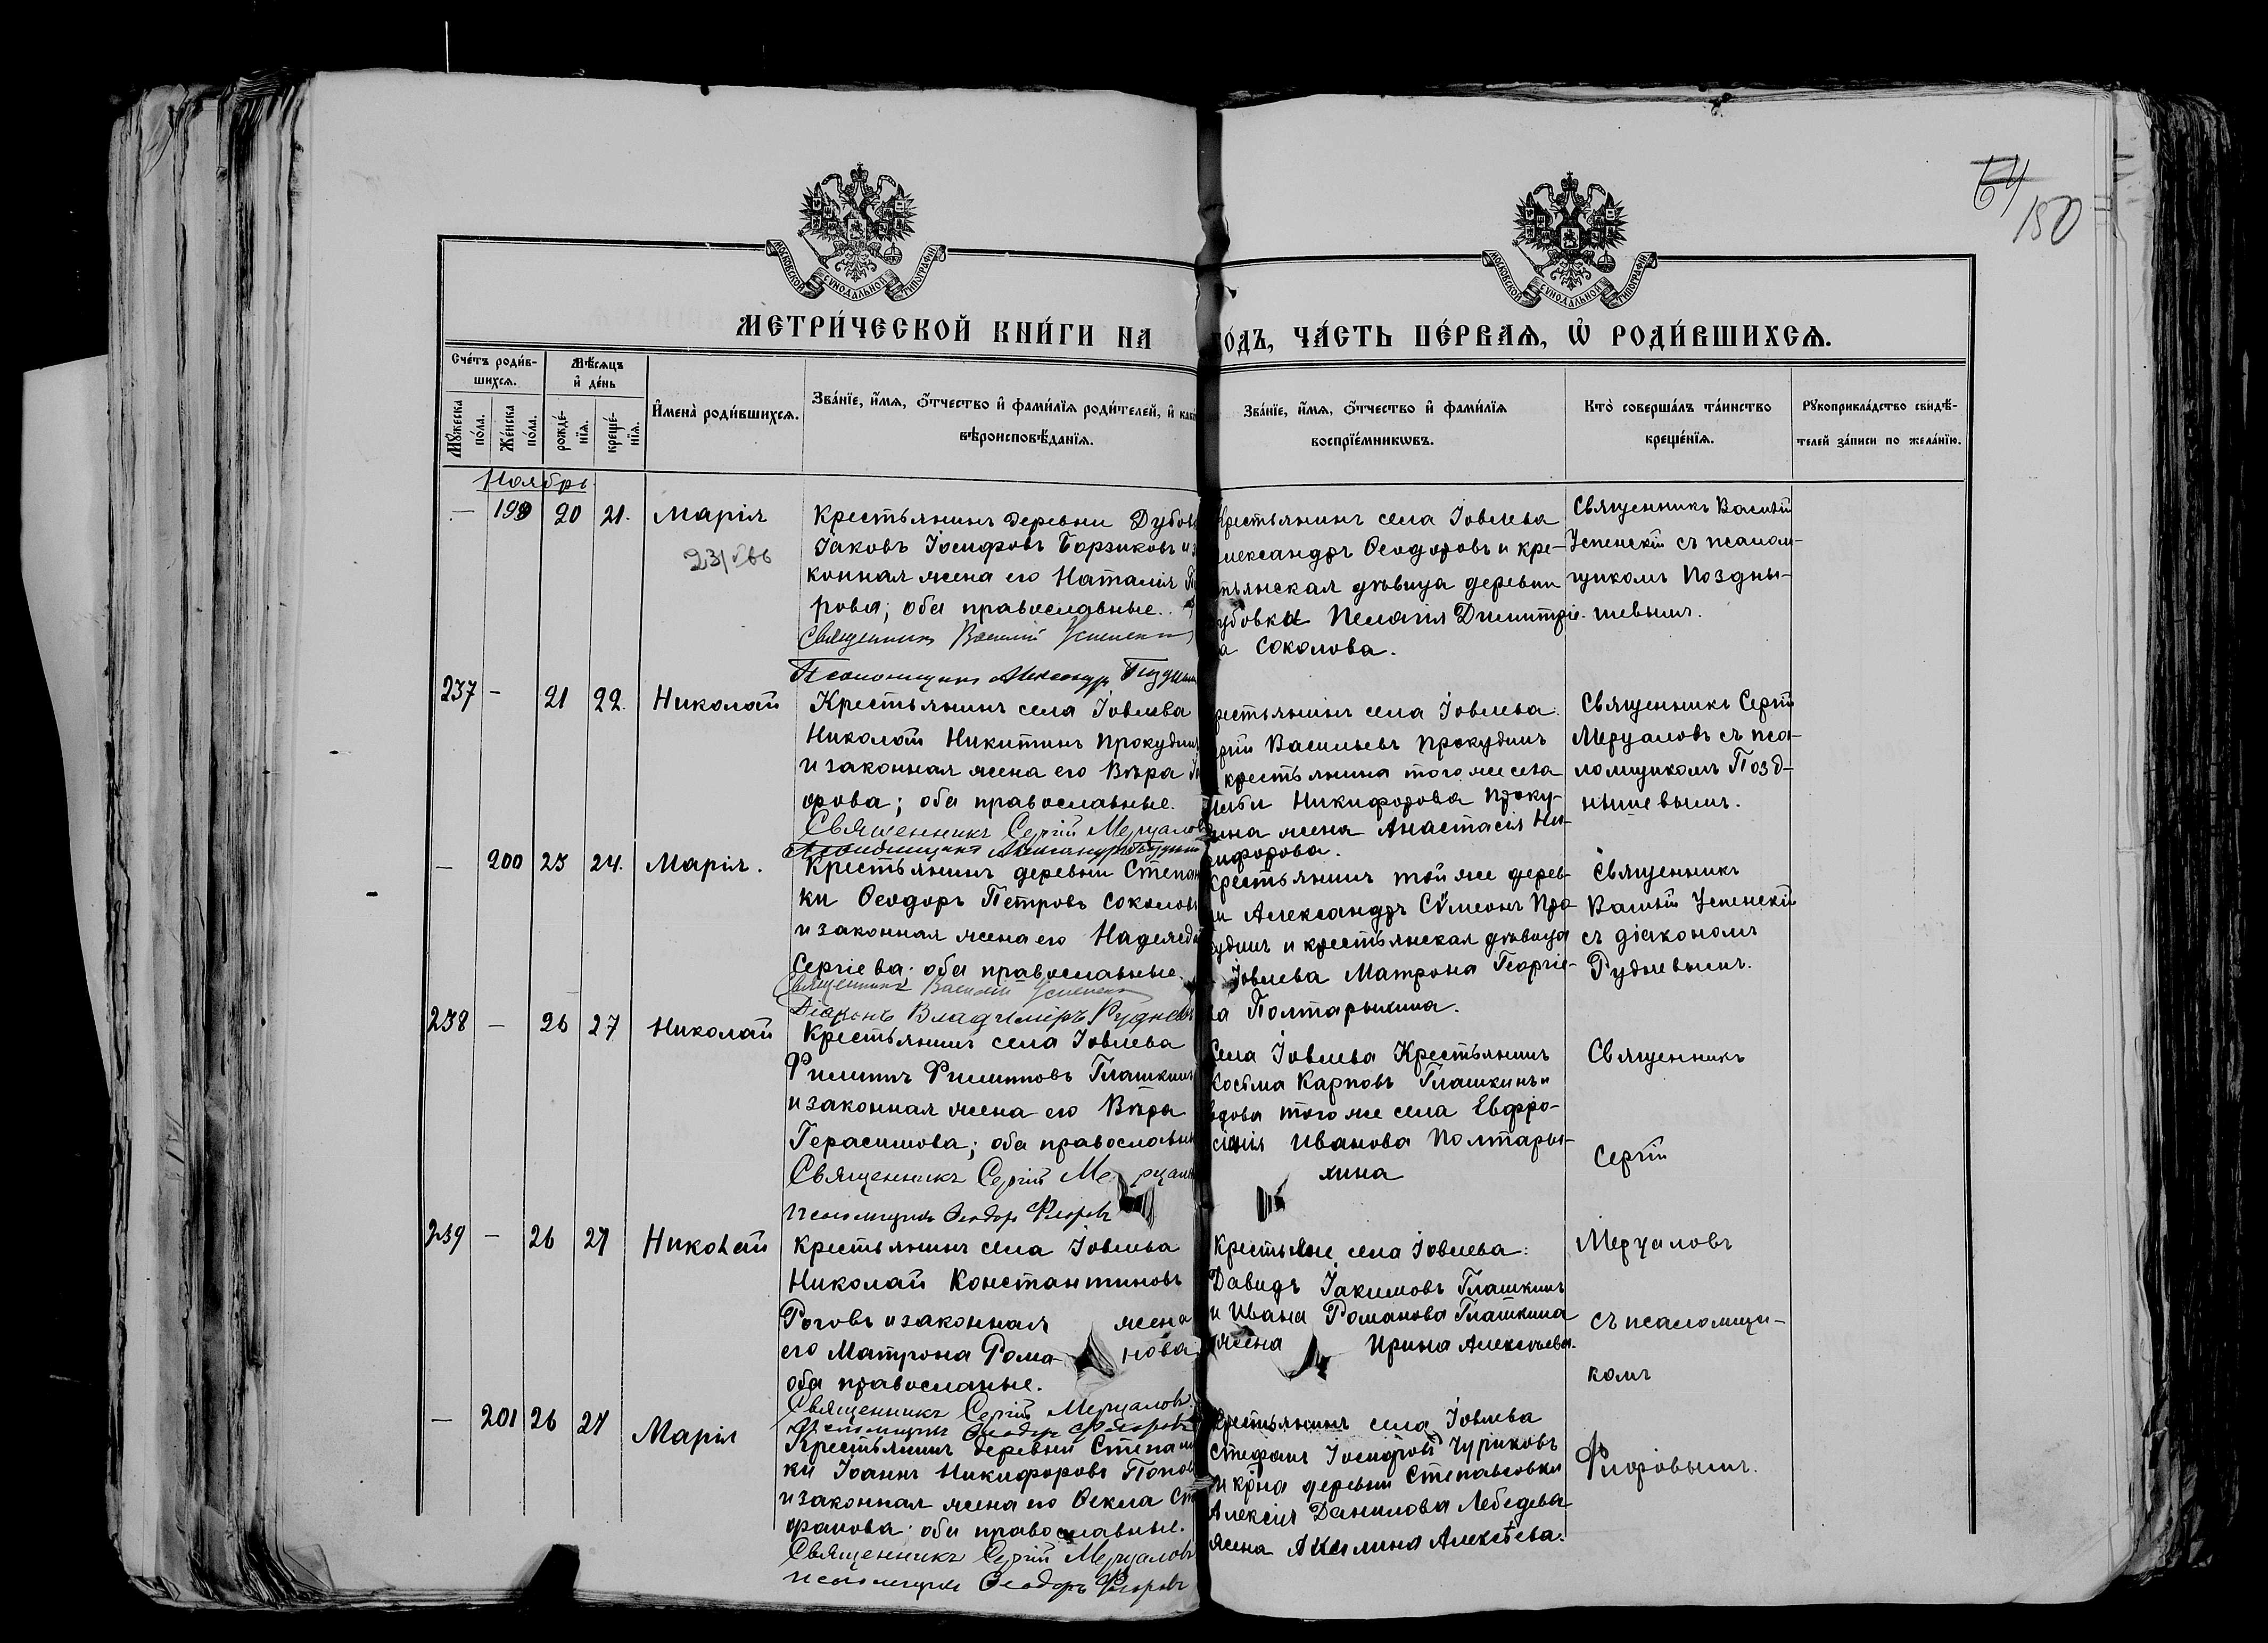 64
150
МОСКОВСКОЙ СѴНОДАЛЬНОЙ ТИПОГРАФІИ
МОСКОВСКОЙ СѴНОДАЛЬНОЙ ТИПОГРАФІИ
МЕТРИ́ЧЕСКОЙ КНИ́ГИ НА
ОДЪ, ЧА́СТЬ ПЕ́РВАѦ, Ѡ҆ РОДИ́ВШИХСѦ.
Сче́тъ роди́в-
шихсѧ.
Мꙋ́жеска
по́ла.
Же́нска
по́ла.
Мѣ́сѧцъ
и҆ де́нь
рожде́-
нїѧ.
креще́-
нїѧ.
И҆мена̀ роди́вшихсѧ.
Зва́нїе, и҆́мѧ, о҆́тчество и҆ фами́лїѧ роди́телей, и҆ как
вѣроисповѣ́данїѧ.
Зва́нїе, и҆́мѧ, о҆́тчество и҆ фами́лїѧ
воспрїе́мникѡвъ.
Кто̀ соверша́лъ та́инство
креще́нїѧ.
Рꙋкоприкла́дство свидѣ́-
телей за́писи по жела́нїю.
Ноябрь
— 199 20 21. Марія
231
Крестьянинъ деревни Дубов
Іаковъ Іосифовъ Борзиковъ и з
конная жена его Наталія П
рова; оба православные.
Священникъ Василій Успенскі
Псаломщикъ Александръ Поздны
Крестьянинъ села Іовлева
Александръ Ѳеодоровъ и кре-
тьянская дѣвица деревни
убовки Пелагія Димитріе-
а Соколова.
Священникъ Василій
Успенскій съ псалом-
щикомъ Поздны-
шевымъ.
237 — 21 22. Николай
Крестьянинъ села Іовлева
Николай Никитинъ Прокудин
и законная жена его Вѣра
орова; оба православные.
Священникъ Сергій Мерцаловъ
Псаломщикъ Александръ
рестьянинъ села Іовлева:
ргій Васильевъ Прокудинъ
крестьянина того же села
Никифорова Проку-
ина жена Анастасія Ни-
кифорова.
Священникъ Сергій
Мерцаловъ съ пса-
ломщикомъ Позд-
нышевымъ.
— 200 23 24. Марія.
Крестьянинъ деревни Степан
ки Ѳеодоръ Петровъ Соколовъ
и законная жена его Надежда
Сергіева; оба православные.
Священникъ Василій Успенскі
Діаконъ Владиміръ Рудневъ
Крестьянинъ той же дерев-
ни Александръ Сѵмеонъ Про-
кудинъ и крестьянская дѣвица
Іовлева Матрона Георгіе-
ва Полтарыхина.
Священникъ
Василій Успенскій
съ діакономъ
Рудневымъ.
238 — 26 27 Николай
Крестьянинъ села Іовлева
Филиппъ Филипповъ Глашкинъ
и законная жена его Вѣра
Герасимова; оба православны
Священникъ Сергій Мерцалов
Псаломщикъ Ѳеодоръ Флоровъ
Села Іовлева Крестьянинъ
Косьма Карповъ Глашкинъ и
вдова того же села Евфро-
синія Иванова Полтары-
хина
Священникъ
Сергій
239 — 26 27 Николай
Крестьянинъ села Іовлева
Николай Константиновъ
Роговъ и законная жена
его Матрона Рома- нова
оба православные.
Священникъ Сергій Мерцаловъ.
Псаломщикъ Ѳеодоръ Флоровъ
Крестьяне села Іовлева:
Давидъ Іакимовъ Глашкинъ
и Ивана Романова Глашкина
жена Ирина Алексѣева.
Мерцаловъ
съ псаломщи-
комъ
— 201 26 27 Марія
Крестьянинъ деревни Степан
ки Іоаннъ Никифоровъ Попов
и законная жена его Ѳекла Ст
фанова; оба православные.
Священникъ Сергій Мерцаловъ
Псаломщикъ Ѳеодоръ Флоровъ
Крестьянинъ села Іовлева
Стефанъ Іосифовъ Чуриковъ
и кр̃на деревни Степановки
Алексія Данилова Лебедева
жена Акилина Алексѣева.
Флоровымъ.